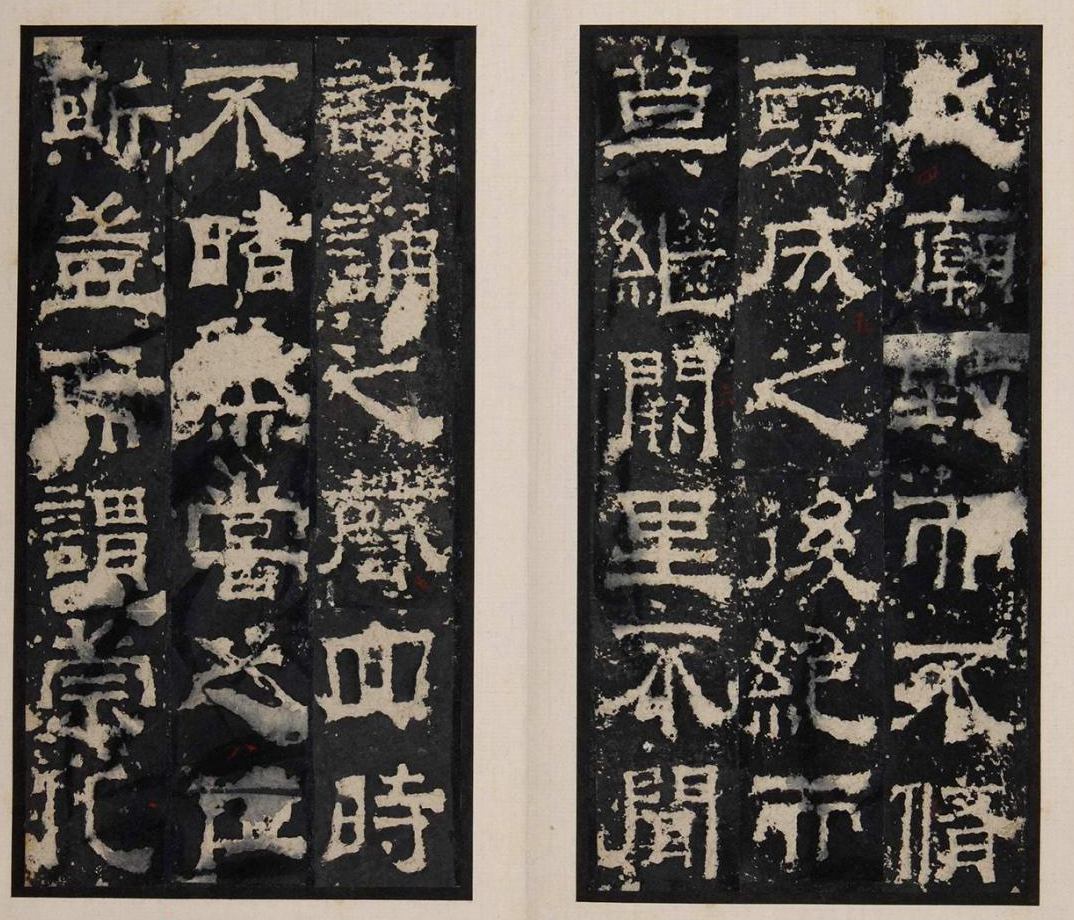 之廟毀而不脩
褒成之後絕而
莫繼闕里不聞
講誦之聲四時
不睹蒸嘗之位
斯豈所謂崇化